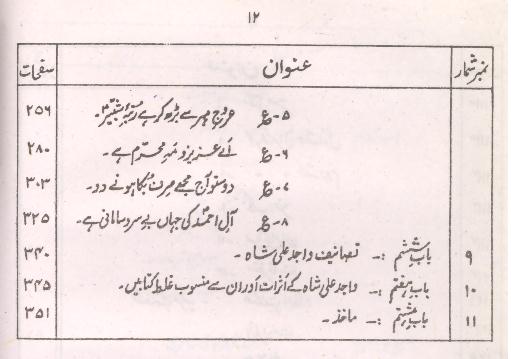 ۱۲
نمبر شمار عنوان صفحات
۵- ع عروجِ مہر سے بڑھ کر ہے رتبۂ شبیرؑ۔ ۲۵۶
۶- ع اے عزیزو نمہِ محرّم ہے۔ ۲۸۰
۷- ع دوستو آج مجھے صرفِ بُکا ہونے دو۔ ۳۰۳
۸- ع آلِ احمدؐ کی جہاں بے سر و سامانی ہے۔ ۳۲۵
۹ بابِ ششتم :- تصانیف واجد علی شاہ۔ ۳۴۰
۱۰ بابِ ہفتم :- واجد علی شاہ کے اثرات اَور ان سے منسوب غلط کتابیں۔ ۳۴۵
۱۱ بابِ ہشتم :- ماخذ۔ ۳۵۱